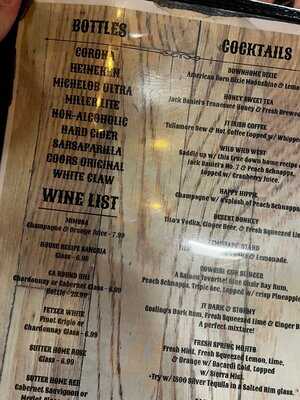 BOTTLES
CORONA
HEINEKEN
MICHELOB ULTRA
MILLER LITE
NON-ALCOHOLIC
HARD CIDER
SARSAPARILLA
COORS ORIGINAL
WHITE CLAW
WINE LIST
MIMOSA
Champagne & Orange Juice - 7.99
HOUSE RECIPE SANGRIA
Glass - 6.99
CA ROUND HILL
Chardonnay or Cabernet Glass - 6.99
Bottle - 28.99
FETZER WHITE
Pinot Grigio or
Chardonnay Glass - 6.99
SUTTER HOME ROSE
Glass - 6.99
SUTTER HOME RED
Cabernet Sauvignon or
COCKTAILS
DOWNHOME DIXIE
American Born Dixie Moonshine & Lemo
HONEY SWEET TEA
Jack Daniel's Tennessee Honey & Fresh Brewe
IT IRISH COFFEE
Tullamore Dew & Hot Coffee topped w/ Whippe
WILD WILD WEST
Saddle up w/ this fine down home recipe
Jack Daniel's No. 7 & Peach Schnapps,
topped w/ Cranberry Juice.
HAPPY HIPPIE
Champagne w/ explosion of Peach Schnapps
DESERT DONKEY
Tito's Vodka, Ginger Beer, & Fresh Squeezed Lim
LEMONADE STAND
& Lemonade.
COWGIRL GUN SLINGER
A Saloon Favorite! Blue Chair Bay Rum,
Peach Schnapps, Triple Sec, topped w/ crisp Pineapple
JT DARK & STORMY
Gosling's Dark Rum, Fresh Squeezed Lime & Ginger
A perfect mixture!
FRESH SPRING MOJITO
Fresh Mint, Fresh Squeezed Lemon, Lime,
& Orange w/ Bacardi Gold, topped
w/ Sierra Mist.
*Try w/ 1800 Silver Tequila in a Salted Rim glass.*